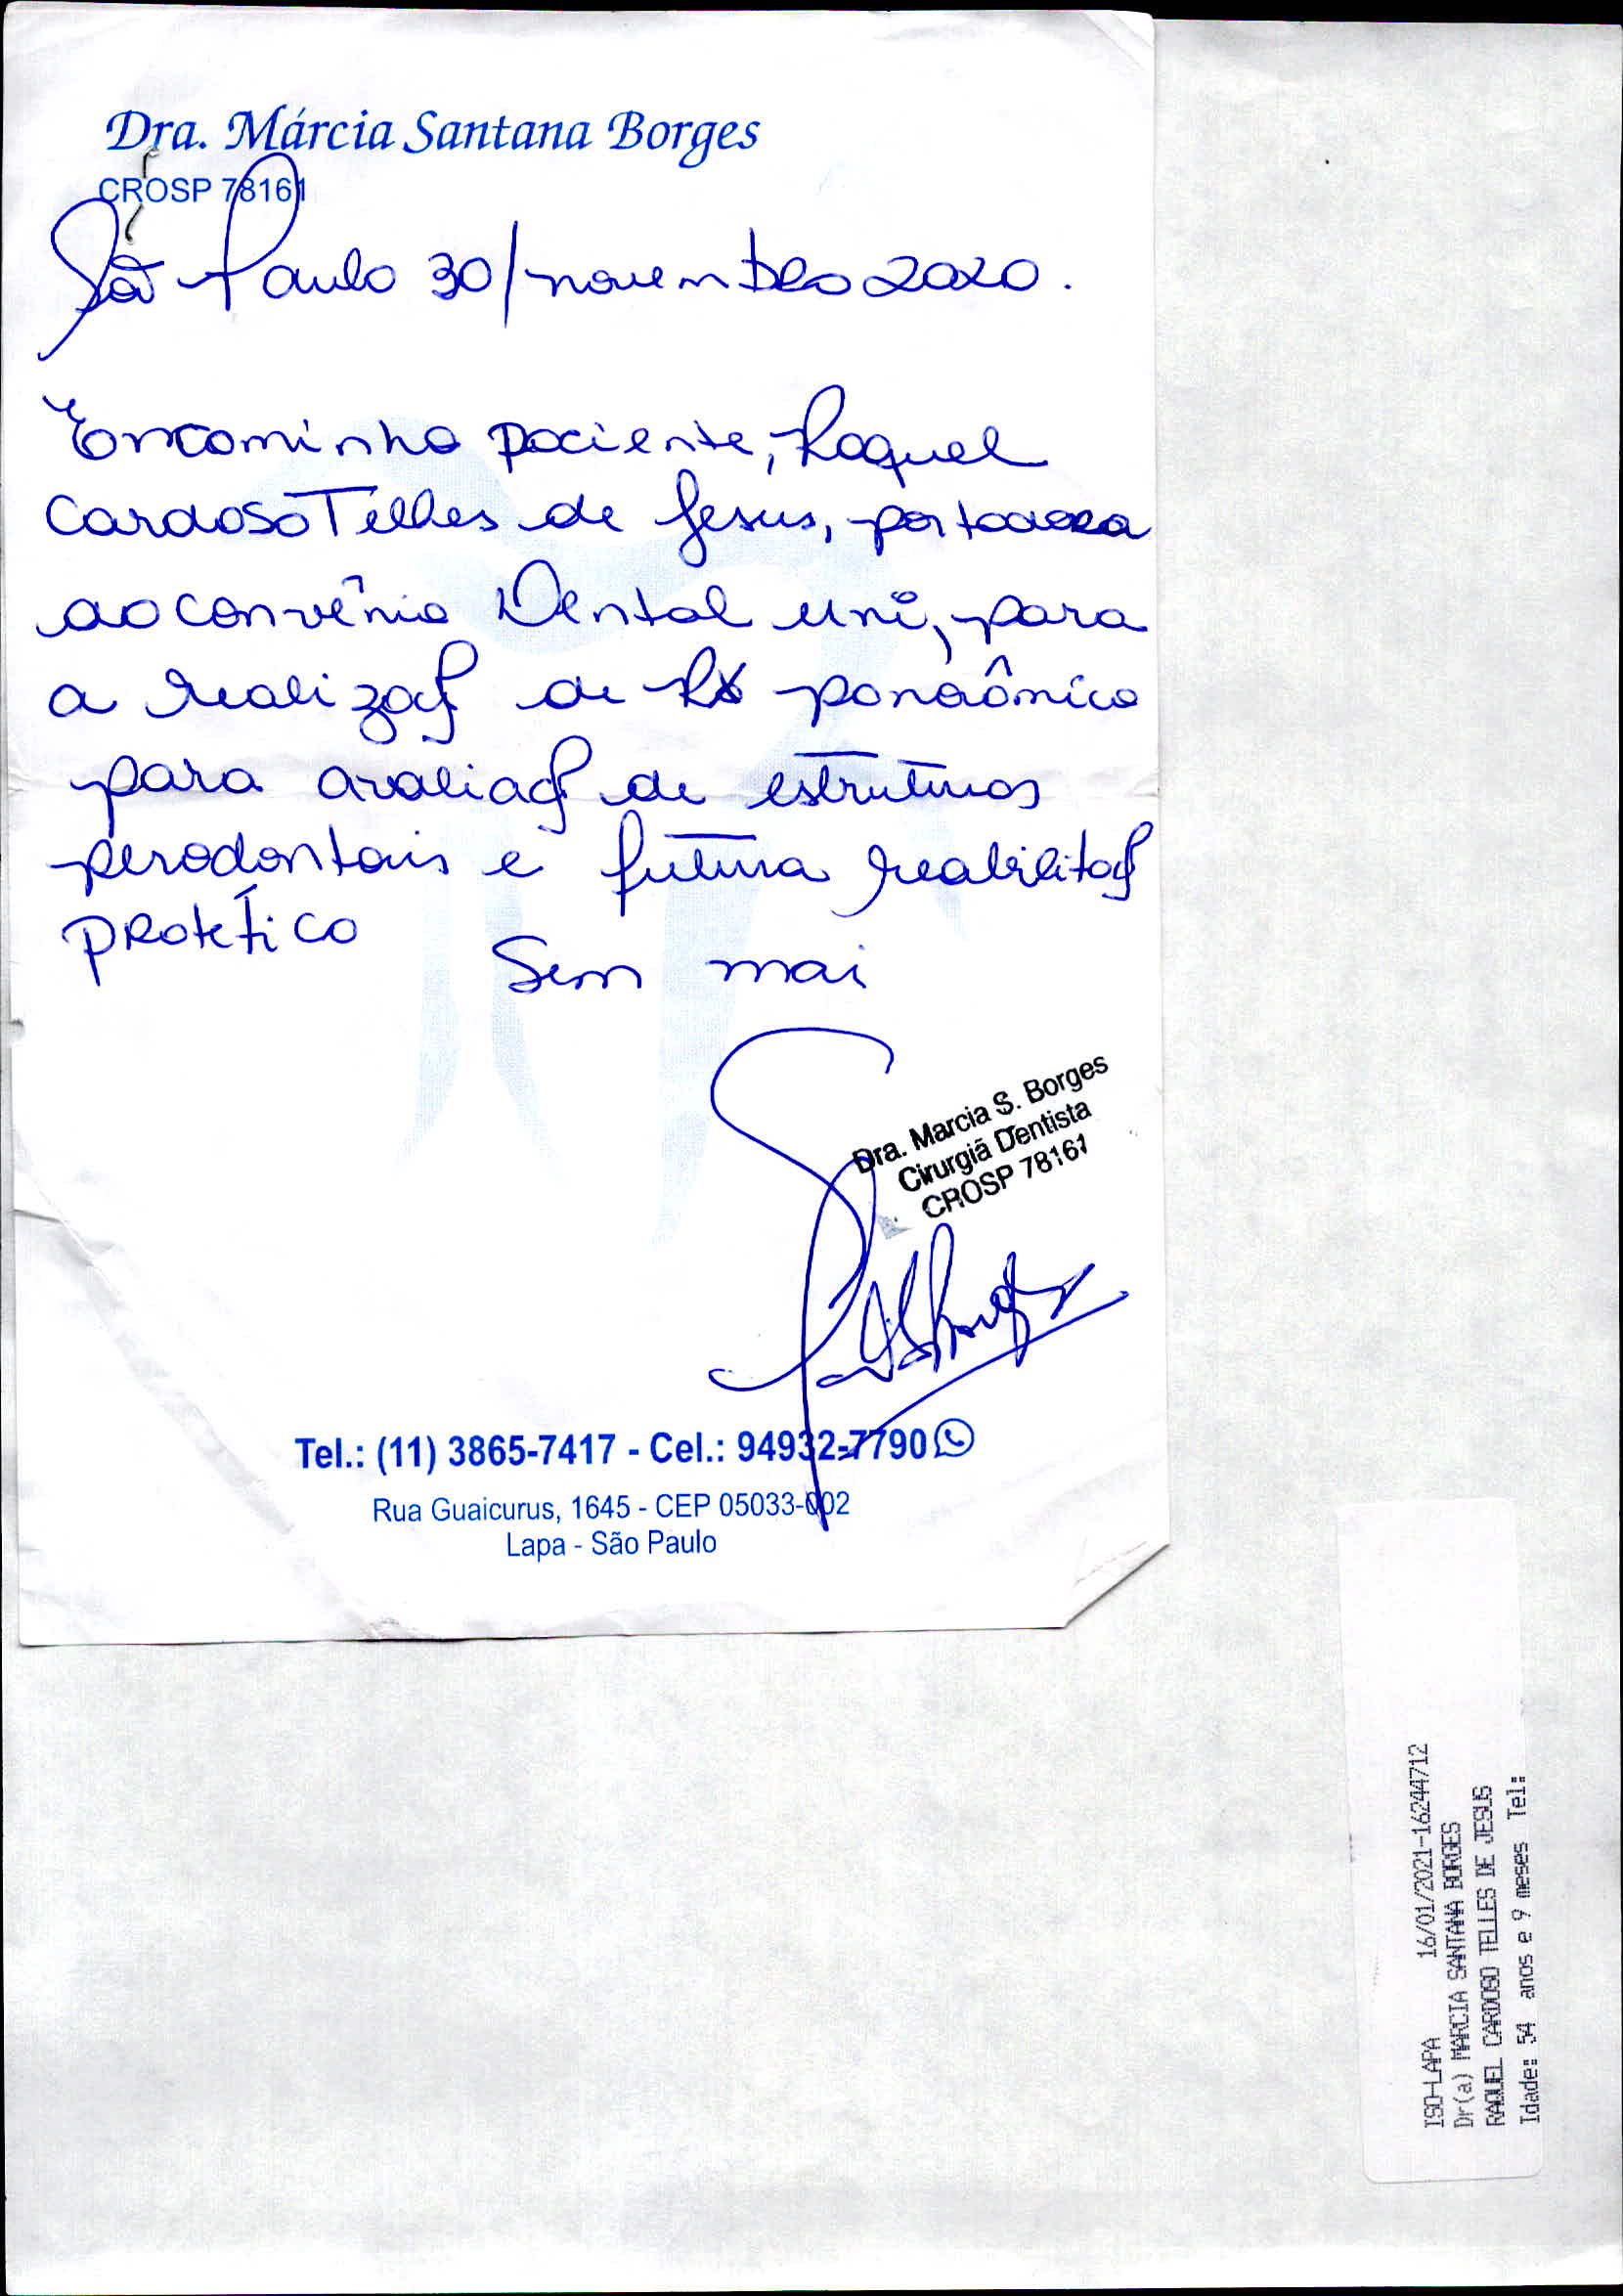 Dra. Márcia Santana Borges
CROSP 78161
São Paulo 30/novembro 2020.
Encaminho paciente, Raquel
Cardoso Telles de Jesus, portadora
do convênio Dental uni, para
a realizaç de RX panorâmica
para avaliaç de estruturas
perodontais e futura reabilitaç
protética
Sem mai
Dra. Marcia S. Borges
Cirurgiã Dentista
CROSP 78161
Tel.: (11) 3865-7417 - Cel.: 94932-7790
Rua Guaicurus, 1645 - CEP 05033-002
Lapa - São Paulo
ISO-LAPA 16/01/2021-16244712
Dr(a) MARCIA SANTANA BORGES
RAQUEL CARDOSO TELLES DE JESUS
Idade: 54 anos e 9 meses Tel: